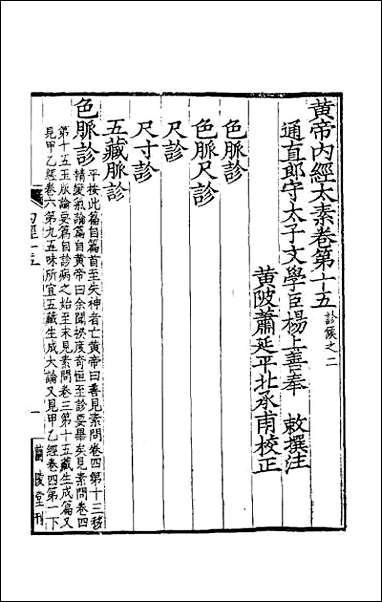 黃帝內經太素卷第十五 診候之二
通直郎守太子文學臣楊上善奉 敕撰注
黃陂蕭延平北承甫校正
色脈診
色脈尺診
尺診
尺寸診
五藏脈診
色脈診
平按此篇自篇首至失神者亡黃帝曰善見素問卷四第十三移
精變氣論篇自黃帝曰余聞揆度奇恒至診要畢矣見素問卷四
第十五玉版論要篇自診病之始至末見素問卷三第十五藏生成篇又
見甲乙經卷六第九五味所宜五藏生成大論又見甲乙經卷四第一下
內經十五
一
蘭陵堂刊